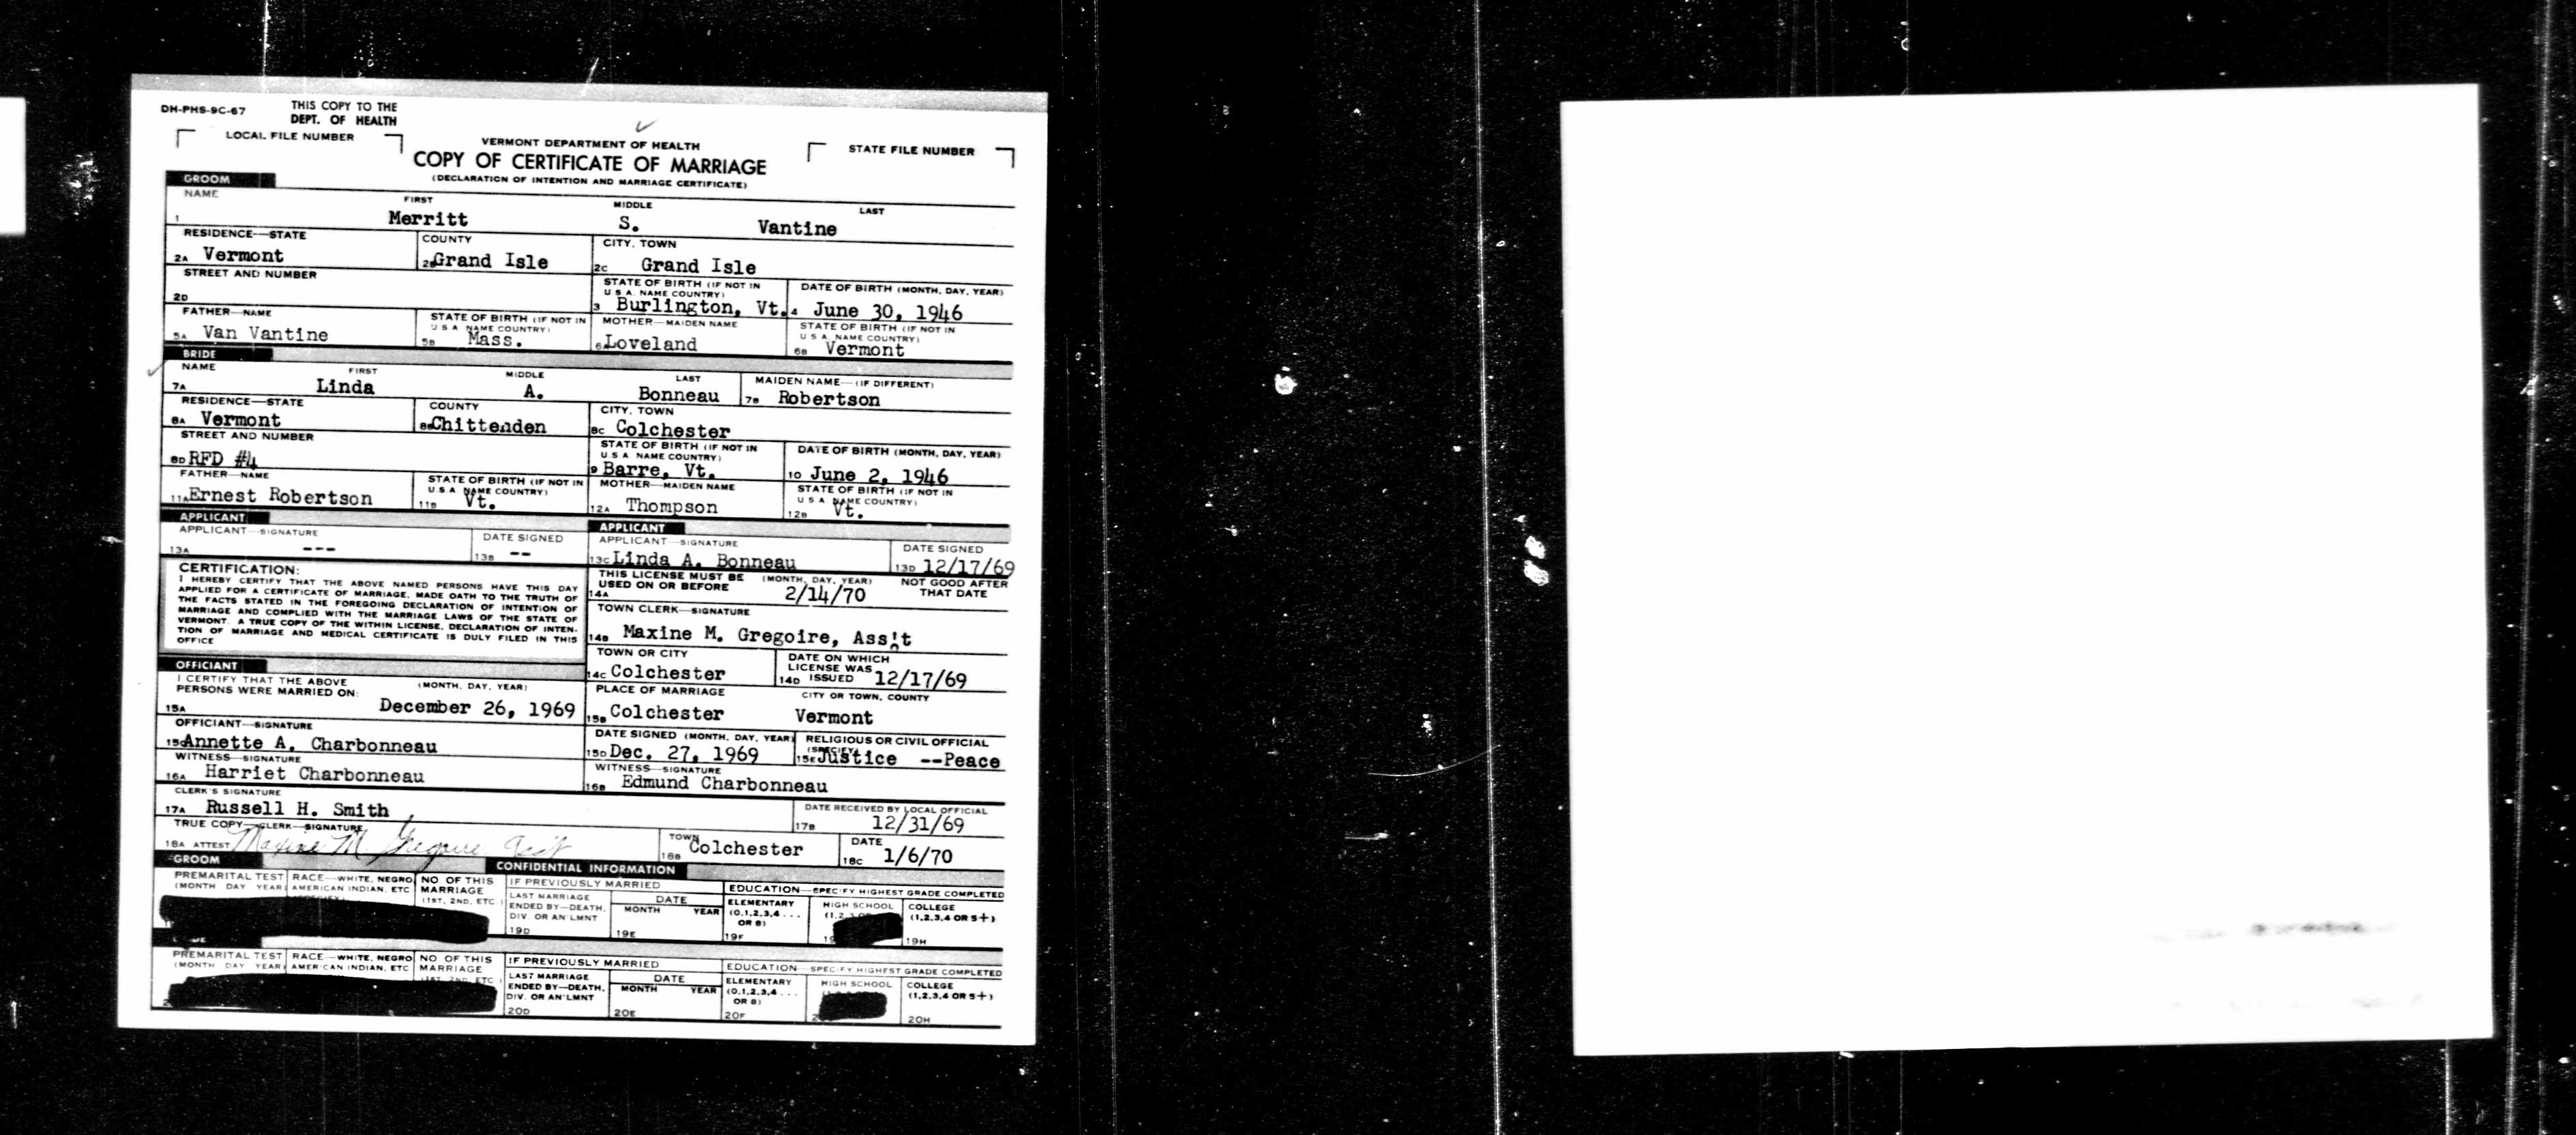 DH-PHS-9C-67
THIS COPY TO THE
DEPT. OF HEALTH
LOCAL FILE NUMBER
VERMONT DEPARTMENT OF HEALTH
STATE FILE NUMBER
COPY OF CERTIFICATE OF MARRIAGE
(DECLARATION OF INTENTION AND MARRIAGE CERTIFICATE)
GROOM
NAME FIRST MIDDLE LAST
1 Merritt S. Vantine
RESIDENCE—STATE COUNTY CITY, TOWN
2A Vermont 2B Grand Isle 2C Grand Isle
STREET AND NUMBER STATE OF BIRTH (IF NOT IN U.S.A. NAME COUNTRY) DATE OF BIRTH (MONTH, DAY, YEAR)
2D 3 Burlington, Vt. 4 June 30, 1946
FATHER—NAME STATE OF BIRTH (IF NOT IN U.S.A. NAME COUNTRY) MOTHER—MAIDEN NAME STATE OF BIRTH (IF NOT IN U.S.A. NAME COUNTRY)
5A Van Vantine 5B Mass. 6 Loveland 6B Vermont
BRIDE
NAME FIRST MIDDLE LAST MAIDEN NAME—(IF DIFFERENT)
7A Linda A. Bonneau 7B Robertson
RESIDENCE—STATE COUNTY CITY, TOWN
8A Vermont 8B Chittenden 8C Colchester
STREET AND NUMBER STATE OF BIRTH (IF NOT IN U.S.A. NAME COUNTRY) DATE OF BIRTH (MONTH, DAY, YEAR)
8D RFD #4 9 Barre, Vt. 10 June 2, 1946
FATHER—NAME STATE OF BIRTH (IF NOT IN U.S.A. NAME COUNTRY) MOTHER—MAIDEN NAME STATE OF BIRTH (IF NOT IN U.S.A. NAME COUNTRY)
11A Ernest Robertson 11B Vt. 12A Thompson 12B Vt.
APPLICANT APPLICANT
APPLICANT—SIGNATURE DATE SIGNED APPLICANT—SIGNATURE DATE SIGNED
13A --- 13B -- 13C Linda A. Bonneau 13D 12/17/69
CERTIFICATION:
I HEREBY CERTIFY THAT THE ABOVE NAMED PERSONS HAVE THIS DAY
APPLIED FOR A CERTIFICATE OF MARRIAGE, MADE OATH TO THE TRUTH OF
THE FACTS STATED IN THE FOREGOING DECLARATION OF INTENTION OF
MARRIAGE AND COMPLIED WITH THE MARRIAGE LAWS OF THE STATE OF
VERMONT. A TRUE COPY OF THE WITHIN LICENSE, DECLARATION OF INTEN-
TION OF MARRIAGE AND MEDICAL CERTIFICATE IS DULY FILED IN THIS
OFFICE
THIS LICENSE MUST BE USED ON OR BEFORE (MONTH, DAY, YEAR) NOT GOOD AFTER THAT DATE
14A 2/14/70
TOWN CLERK—SIGNATURE
14B Maxine M. Gregoire, Ass't
TOWN OR CITY DATE ON WHICH LICENSE WAS ISSUED
14C Colchester 14D 12/17/69
OFFICIANT
I CERTIFY THAT THE ABOVE PERSONS WERE MARRIED ON: (MONTH, DAY, YEAR) PLACE OF MARRIAGE CITY OR TOWN, COUNTY
15A December 26, 1969 15B Colchester Vermont
OFFICIANT—SIGNATURE DATE SIGNED (MONTH, DAY, YEAR) RELIGIOUS OR CIVIL OFFICIAL (SPECIFY)
15C Annette A. Charbonneau 15D Dec. 27, 1969 15E Justice --Peace
WITNESS—SIGNATURE WITNESS—SIGNATURE
16A Harriet Charbonneau 16B Edmund Charbonneau
CLERK'S SIGNATURE DATE RECEIVED BY LOCAL OFFICIAL
17A Russell H. Smith 17B 12/31/69
TRUE COPY—CLERK—SIGNATURE TOWN DATE
18A ATTEST Maxine M. Gregoire Ass't 18B Colchester 18C 1/6/70
GROOM CONFIDENTIAL INFORMATION
PREMARITAL TEST (MONTH DAY YEAR) RACE—WHITE, NEGRO AMERICAN INDIAN, ETC NO OF THIS MARRIAGE (1ST, 2ND, ETC.) IF PREVIOUSLY MARRIED EDUCATION—SPECIFY HIGHEST GRADE COMPLETED
LAST MARRIAGE ENDED BY—DEATH, DIV. OR AN'LMNT DATE MONTH YEAR ELEMENTARY (0,1,2,3,4 . . . OR 8) HIGH SCHOOL COLLEGE (1,2,3,4 OR 5+)
19D 19E 19F 19H
PREMARITAL TEST (MONTH DAY YEAR) RACE—WHITE, NEGRO AMERICAN INDIAN, ETC NO OF THIS MARRIAGE (1ST, 2ND, ETC IF PREVIOUSLY MARRIED EDUCATION—SPECIFY HIGHEST GRADE COMPLETED
LAST MARRIAGE ENDED BY—DEATH, DIV. OR AN'LMNT DATE MONTH YEAR ELEMENTARY (0,1,2,3,4 . . . OR 8) HIGH SCHOOL COLLEGE (1,2,3,4 OR 5+)
20D 20E 20F 20H